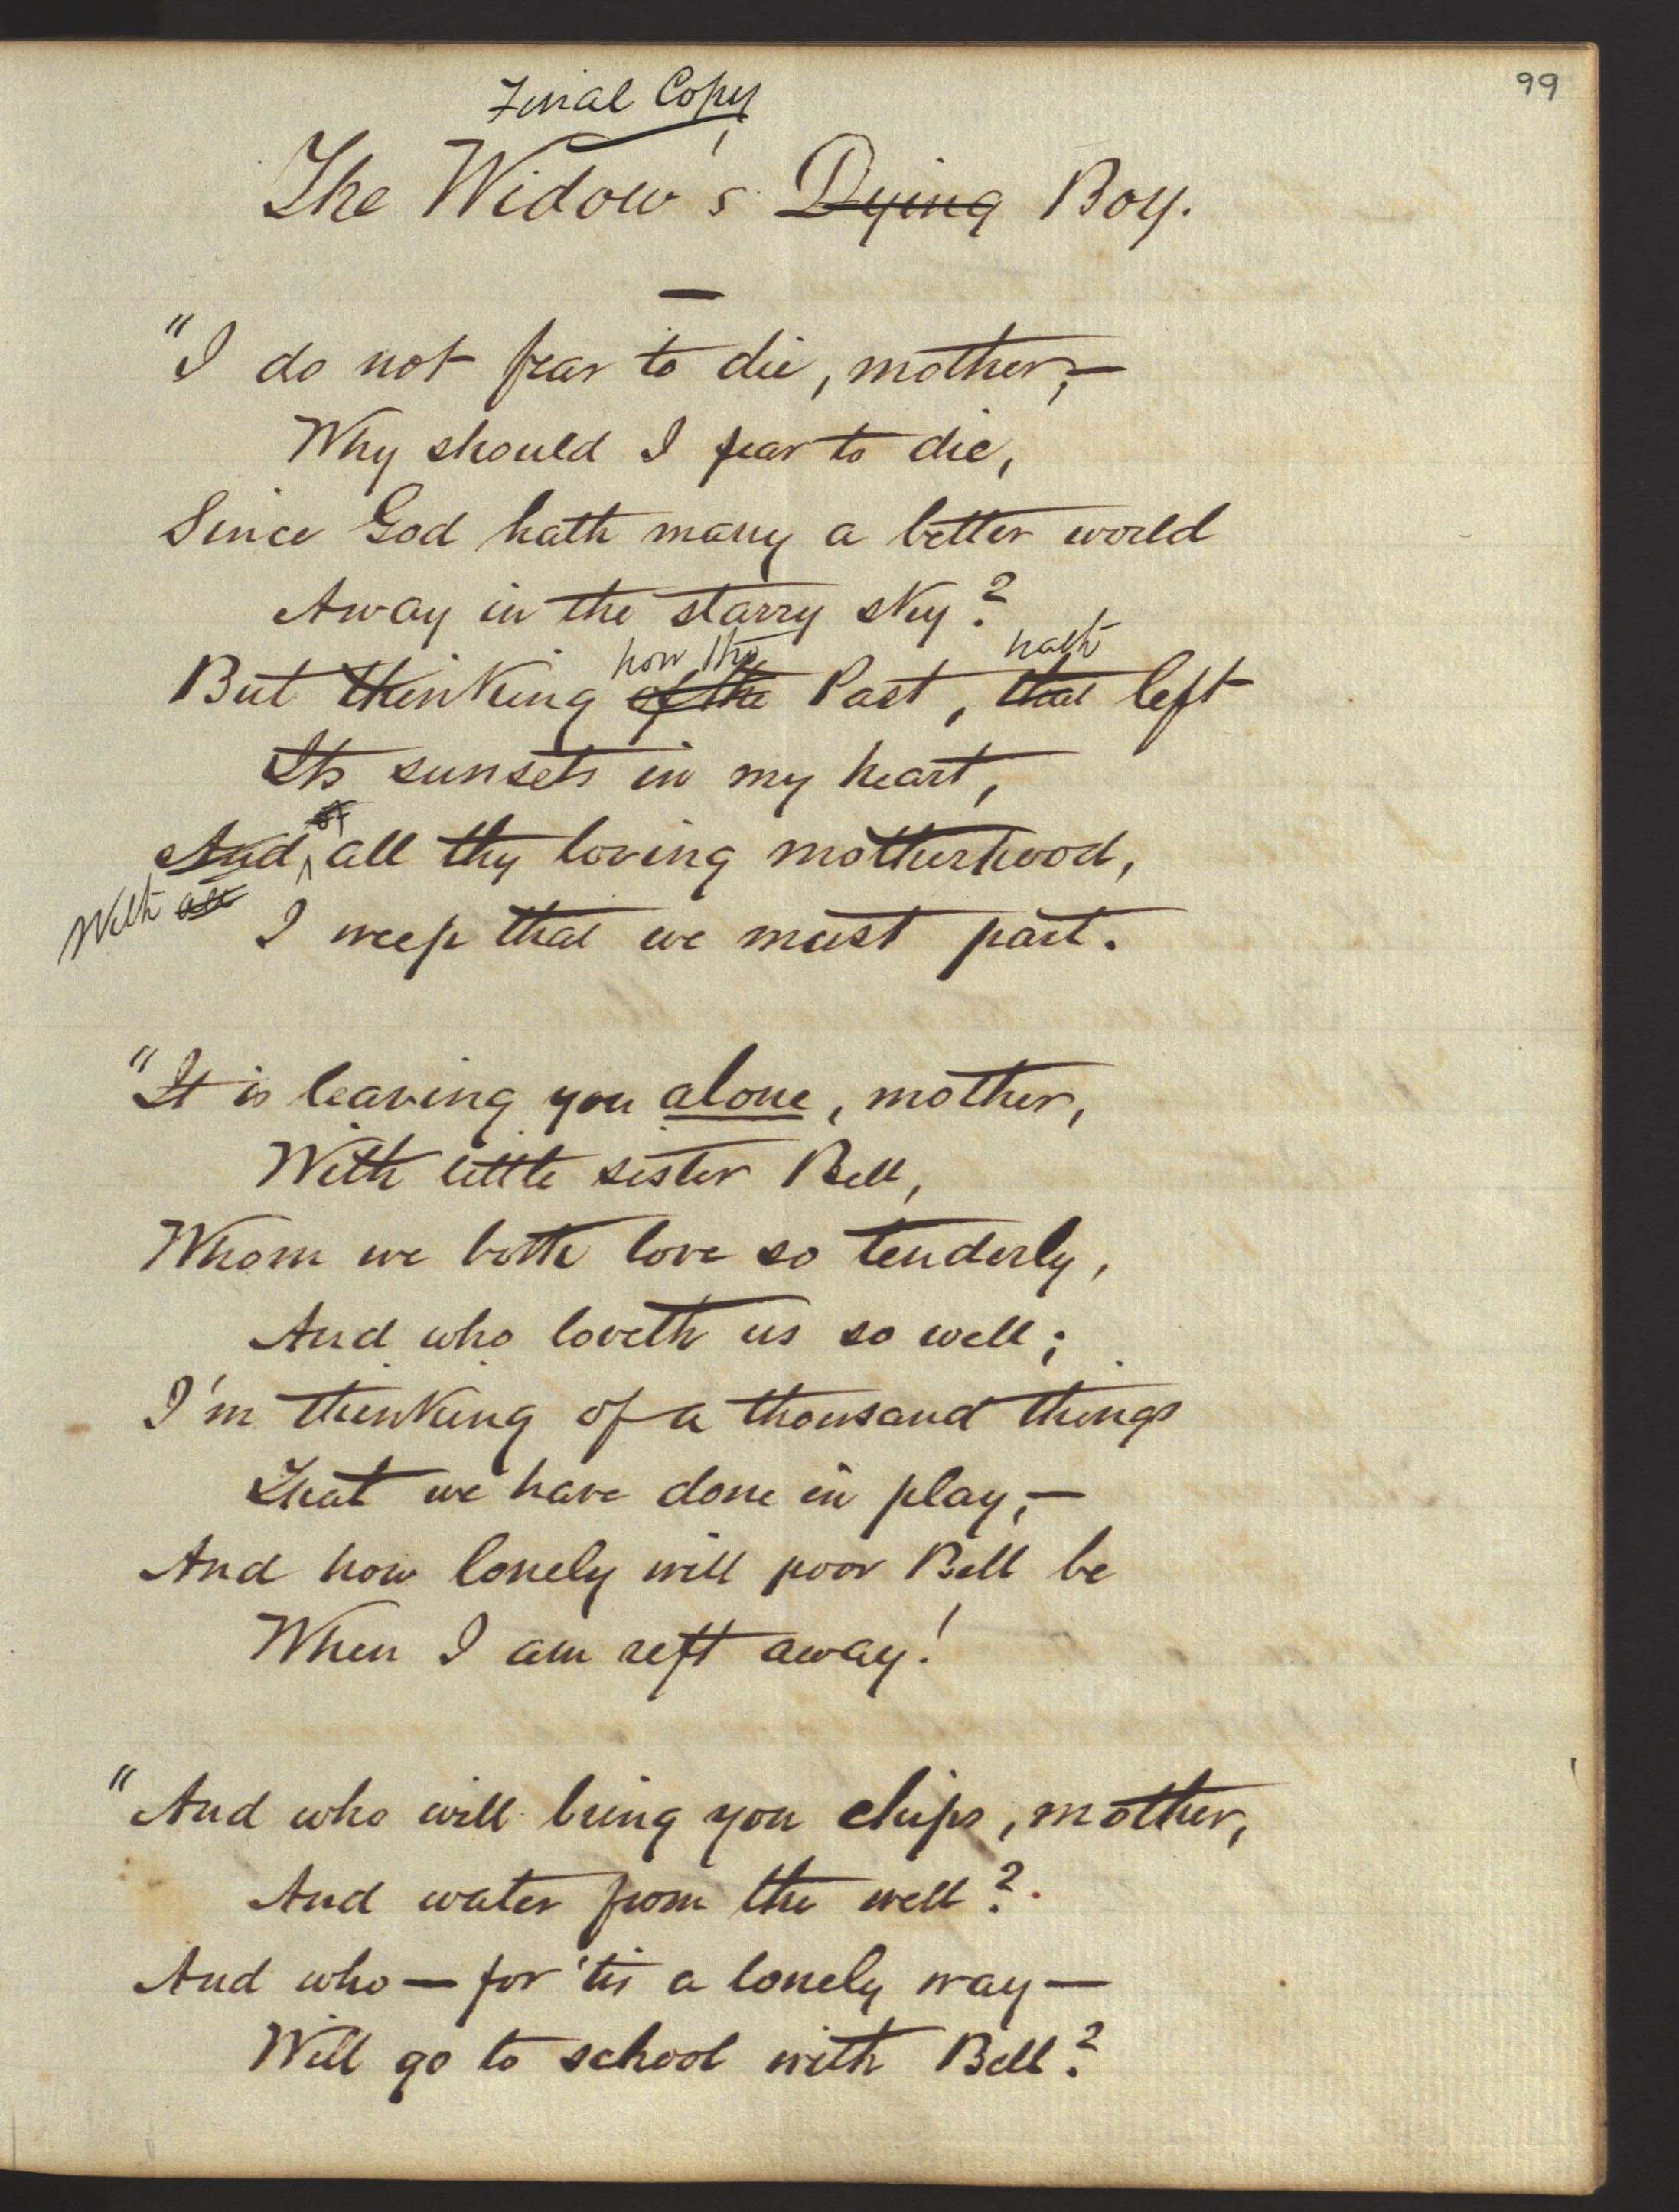 99
Final Copy
The Widow's Dying Boy.
"I do not fear to die, mother,—
Why should I fear to die,
Since God hath many a better world
Away in the starry sky?
how the hath
But thinking of the Past, that left
Its sunsets in my heart,
of
And all thy loving motherhood,
With all
I weep that we must part.
"It is leaving you alone, mother,
With little sister Bell,
Whom we both love so tenderly,
And who loveth us so well;
I'm thinking of a thousand things
That we have done in play,—
And how lonely will poor Bell be
When I am reft away!
"And who will bring you chips, mother,
And water from the well?
And who — for 'tis a lonely way —
Will go to school with Bell?